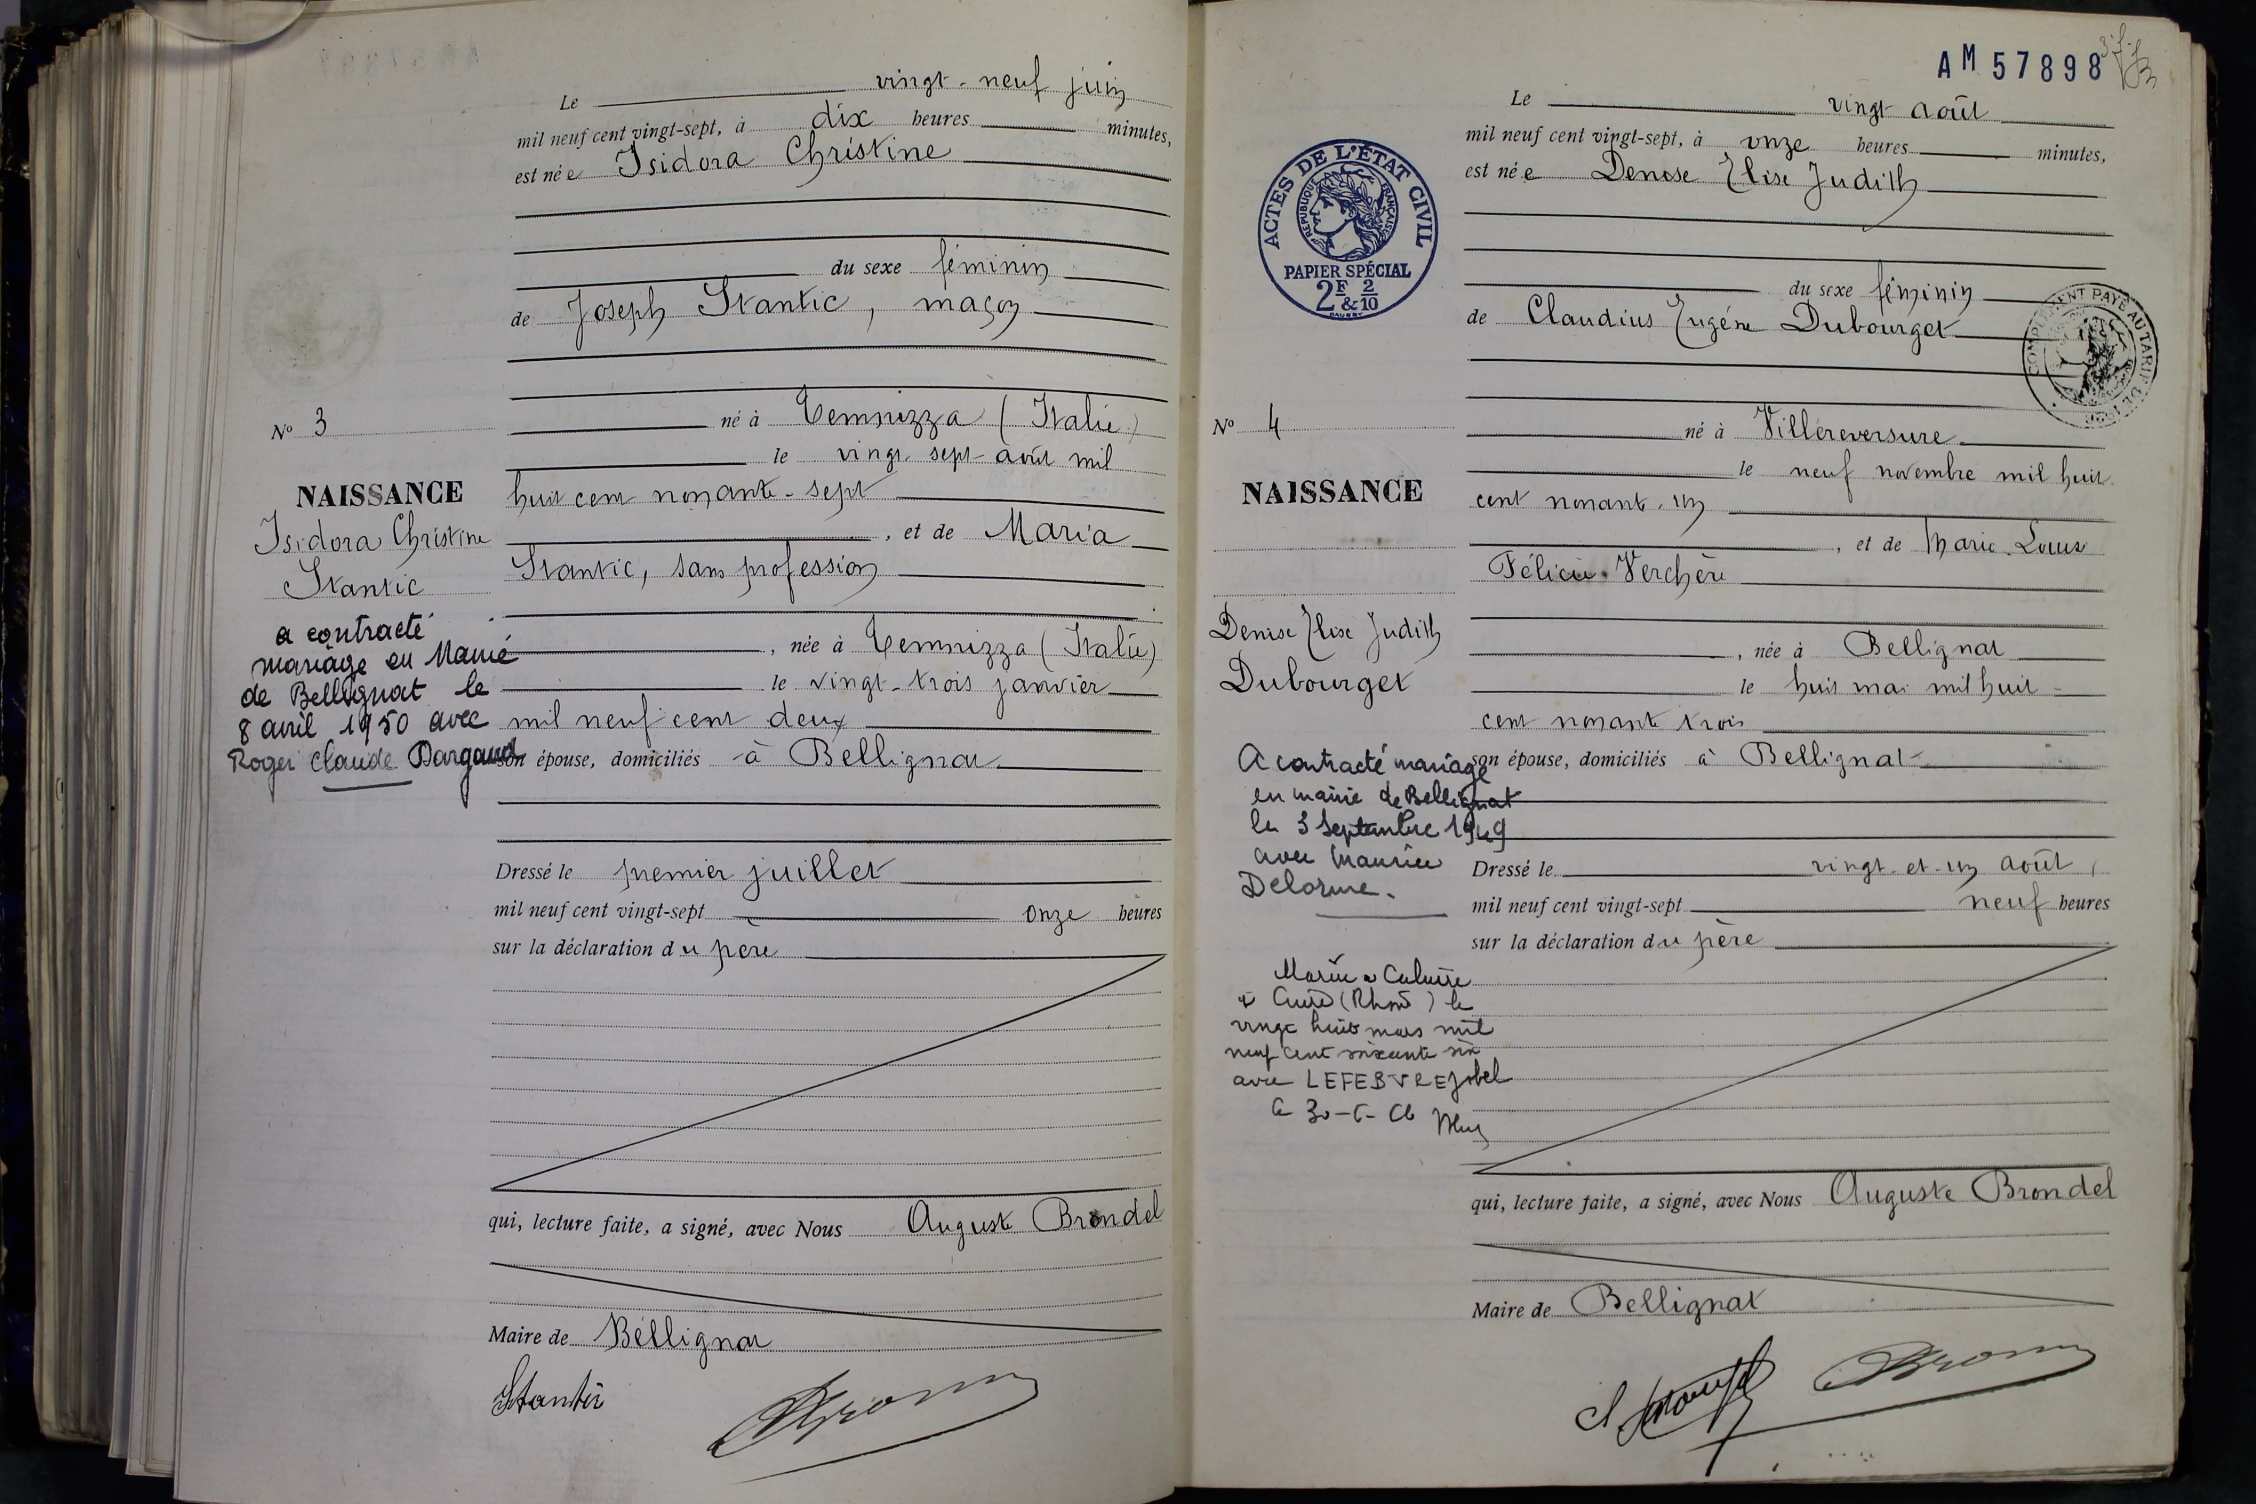 Le vingt-neuf juin
mil neuf cent vingt-sept, à dix heures minutes,
est née Isidora Christine
du sexe féminin
de Joseph Stantic, maçon
né à Temnizza (Italie)
le vingt-sept août mil
huit cent nonante-sept
, et de Maria
Stantic, sans profession
, née à Temnizza (Italie)
le vingt-trois janvier
mil neuf cent deux
son épouse, domiciliés à Bellignat
Dressé le premier juillet
mil neuf cent vingt-sept onze heures
sur la déclaration du père
qui, lecture faite, a signé, avec Nous Auguste Brondel
Maire de Bellignat
Stantic
No 3
NAISSANCE
Isidora Christine
Stantic
a contracté
mariage en Mairie
de Bellignat le
8 avril 1950 avec
Roger Claude Dargaud
AM 57898
Le vingt août
mil neuf cent vingt-sept, à onze heures minutes,
est née Denise Elise Judith
du sexe féminin
de Claudius Eugène Dubourget
né à Villereversure
le neuf novembre mil huit
cent nonante-un
, et de Marie-Louise
Félicie Verchère
, née à Bellignat
le huit mai mil huit
cent nonante trois
son épouse, domiciliés à Bellignat
Dressé le vingt-et-un août,
mil neuf cent vingt-sept neuf heures
sur la déclaration du père
qui, lecture faite, a signé, avec Nous Auguste Brondel
Maire de Bellignat
ACTES DE L'ÉTAT CIVIL
RÉPUBLIQUE FRANÇAISE
PAPIER SPÉCIAL
2F & 2/10
COMPLÉMENT PAYÉ AU TARIF DE
No 4
NAISSANCE
Denise Elise Judith
Dubourget
A contracté mariage
en mairie de Bellignat
le 3 Septembre 1949
avec Maurice
Delorme.
Mariée à Caluire
et Cuire (Rhône) le
vingt huit mars mil
neuf cent soixante six
avec LEFEBVRE